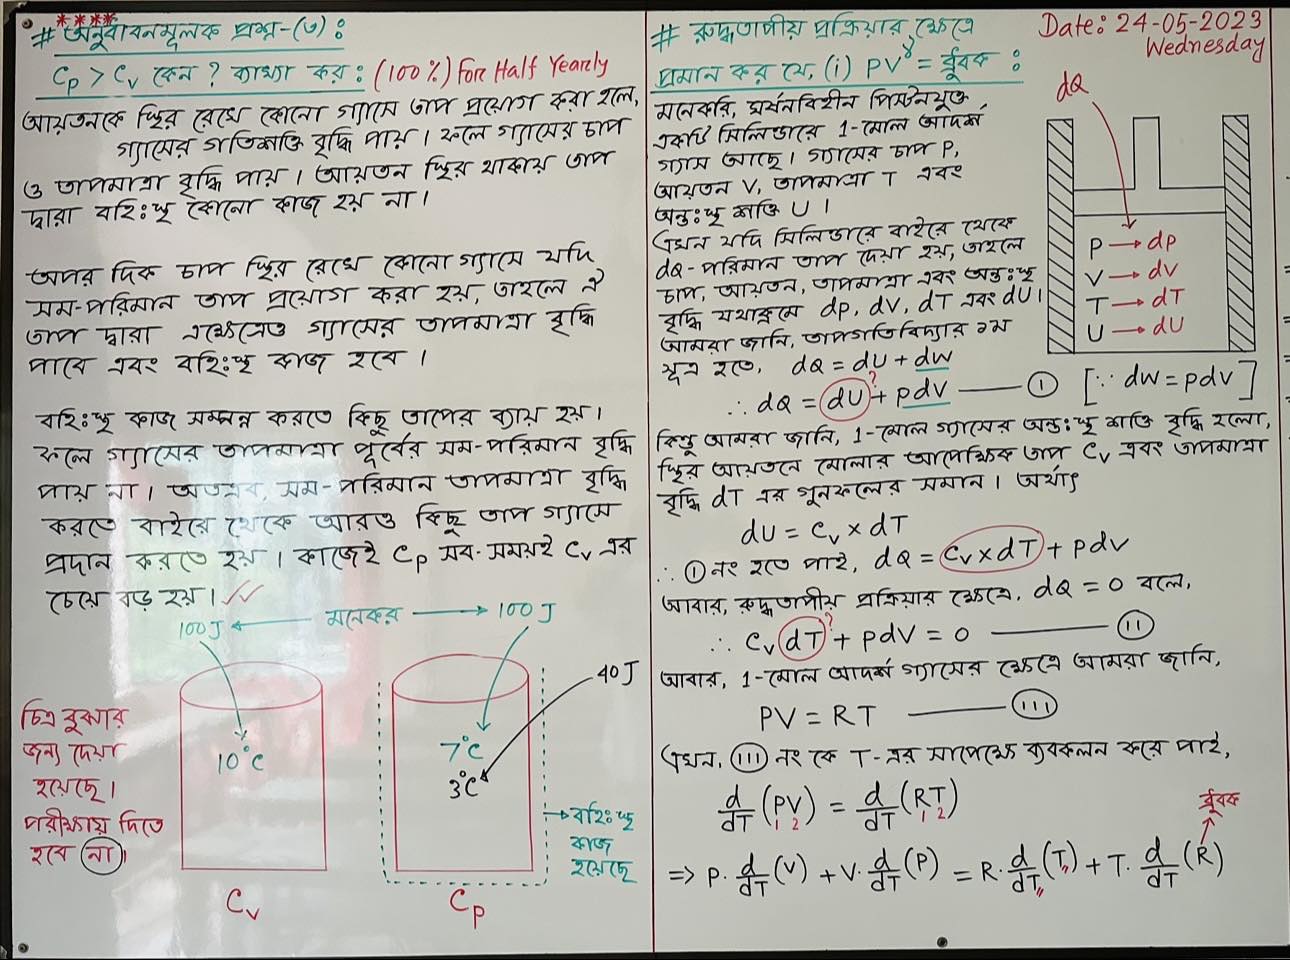 # অনুধাবনমূলক প্রশ্ন-(৩) :
Cp > Cv কেন ? ব্যাখ্যা কর : (100%) For Half Yearly
আয়তনকে স্থির রেখে কোনো গ্যাসে তাপ প্রয়োগ করা হলে,
গ্যাসের গতিশক্তি বৃদ্ধি পায় । ফলে গ্যাসের চাপ
ও তাপমাত্রা বৃদ্ধি পায় । আয়তন স্থির থাকায় তাপ
দ্বারা বহিঃস্থ কোনো কাজ হয় না ।
অপর দিক চাপ স্থির রেখে কোনো গ্যাসে যদি
সম-পরিমান তাপ প্রয়োগ করা হয়, তাহলে ঐ
তাপ দ্বারা এক্ষেত্রেও গ্যাসের তাপমাত্রা বৃদ্ধি
পাবে এবং বহিঃস্থ কাজ হবে ।
বহিঃস্থ কাজ সম্পন্ন করতে কিছু তাপের ব্যয় হয় ।
ফলে গ্যাসের তাপমাত্রা পূর্বের সম-পরিমান বৃদ্ধি
পায় না । অতএব, সম-পরিমান তাপমাত্রা বৃদ্ধি
করতে বাইরে থেকে আরও কিছু তাপ গ্যাসে
প্রদান করতে হয় । কাজেই Cp সব-সময়ই Cv এর
চেয়ে বড় হয় ।
100J ← মনেকর → 100J
40J
10°C
7°C
3°C
চিত্র বুঝার
জন্য দেয়া
হয়েছে ।
পরীক্ষায় দিতে
হবে না ।
বহিঃস্থ
কাজ
হয়েছে
Cv
Cp
# রুদ্ধতাপীয় প্রক্রিয়ার ক্ষেত্রে
প্রমান কর যে, (i) PV^γ = ধ্রুবক :
Date: 24-05-2023
Wednesday
মনেকরি, ঘর্ষনবিহীন পিস্টনযুক্ত
একটি সিলিন্ডারে 1-মোল আদর্শ
গ্যাস আছে । গ্যাসের চাপ P,
আয়তন V, তাপমাত্রা T এবং
অন্তঃস্থ শক্তি U ।
এখন যদি সিলিন্ডারে বাইরে থেকে
dQ-পরিমান তাপ দেয়া হয়, তাহলে
চাপ, আয়তন, তাপমাত্রা এবং অন্তঃস্থ
বৃদ্ধি যথাক্রমে dp, dV, dT এবং dU ।
আমরা জানি, তাপগতিবিদ্যার ১ম
সূত্র হতে, dQ = dU + dW
dQ
P → dp
V → dV
T → dT
U → dU
∴ dQ = dU? + pdV —— ① [∵ dW = pdV]
কিন্তু আমরা জানি, 1-মোল গ্যাসের অন্তঃস্থ শক্তি বৃদ্ধি হলো,
স্থির আয়তনে মোলার আপেক্ষিক তাপ Cv এবং তাপমাত্রা
বৃদ্ধি dT এর গুনফলের সমান । অর্থাৎ
dU = Cv × dT
∴ ① নং হতে পাই, dQ = Cv × dT + pdV
আবার, রুদ্ধতাপীয় প্রক্রিয়ার ক্ষেত্রে, dQ = 0 বলে,
∴ Cv dT? + pdV = 0 —— ⑪
আবার, 1-মোল আদর্শ গ্যাসের ক্ষেত্রে আমরা জানি,
PV = RT —— (III)
এখন, (III) নং কে T-এর সাপেক্ষে ব্যবকলন করে পাই,
d/dT (PV) = d/dT (RT)
1 2 1 2
ধ্রুবক
⇒ P. d/dT (V) + V. d/dT (P) = R. d/dT (T) + T. d/dT (R)